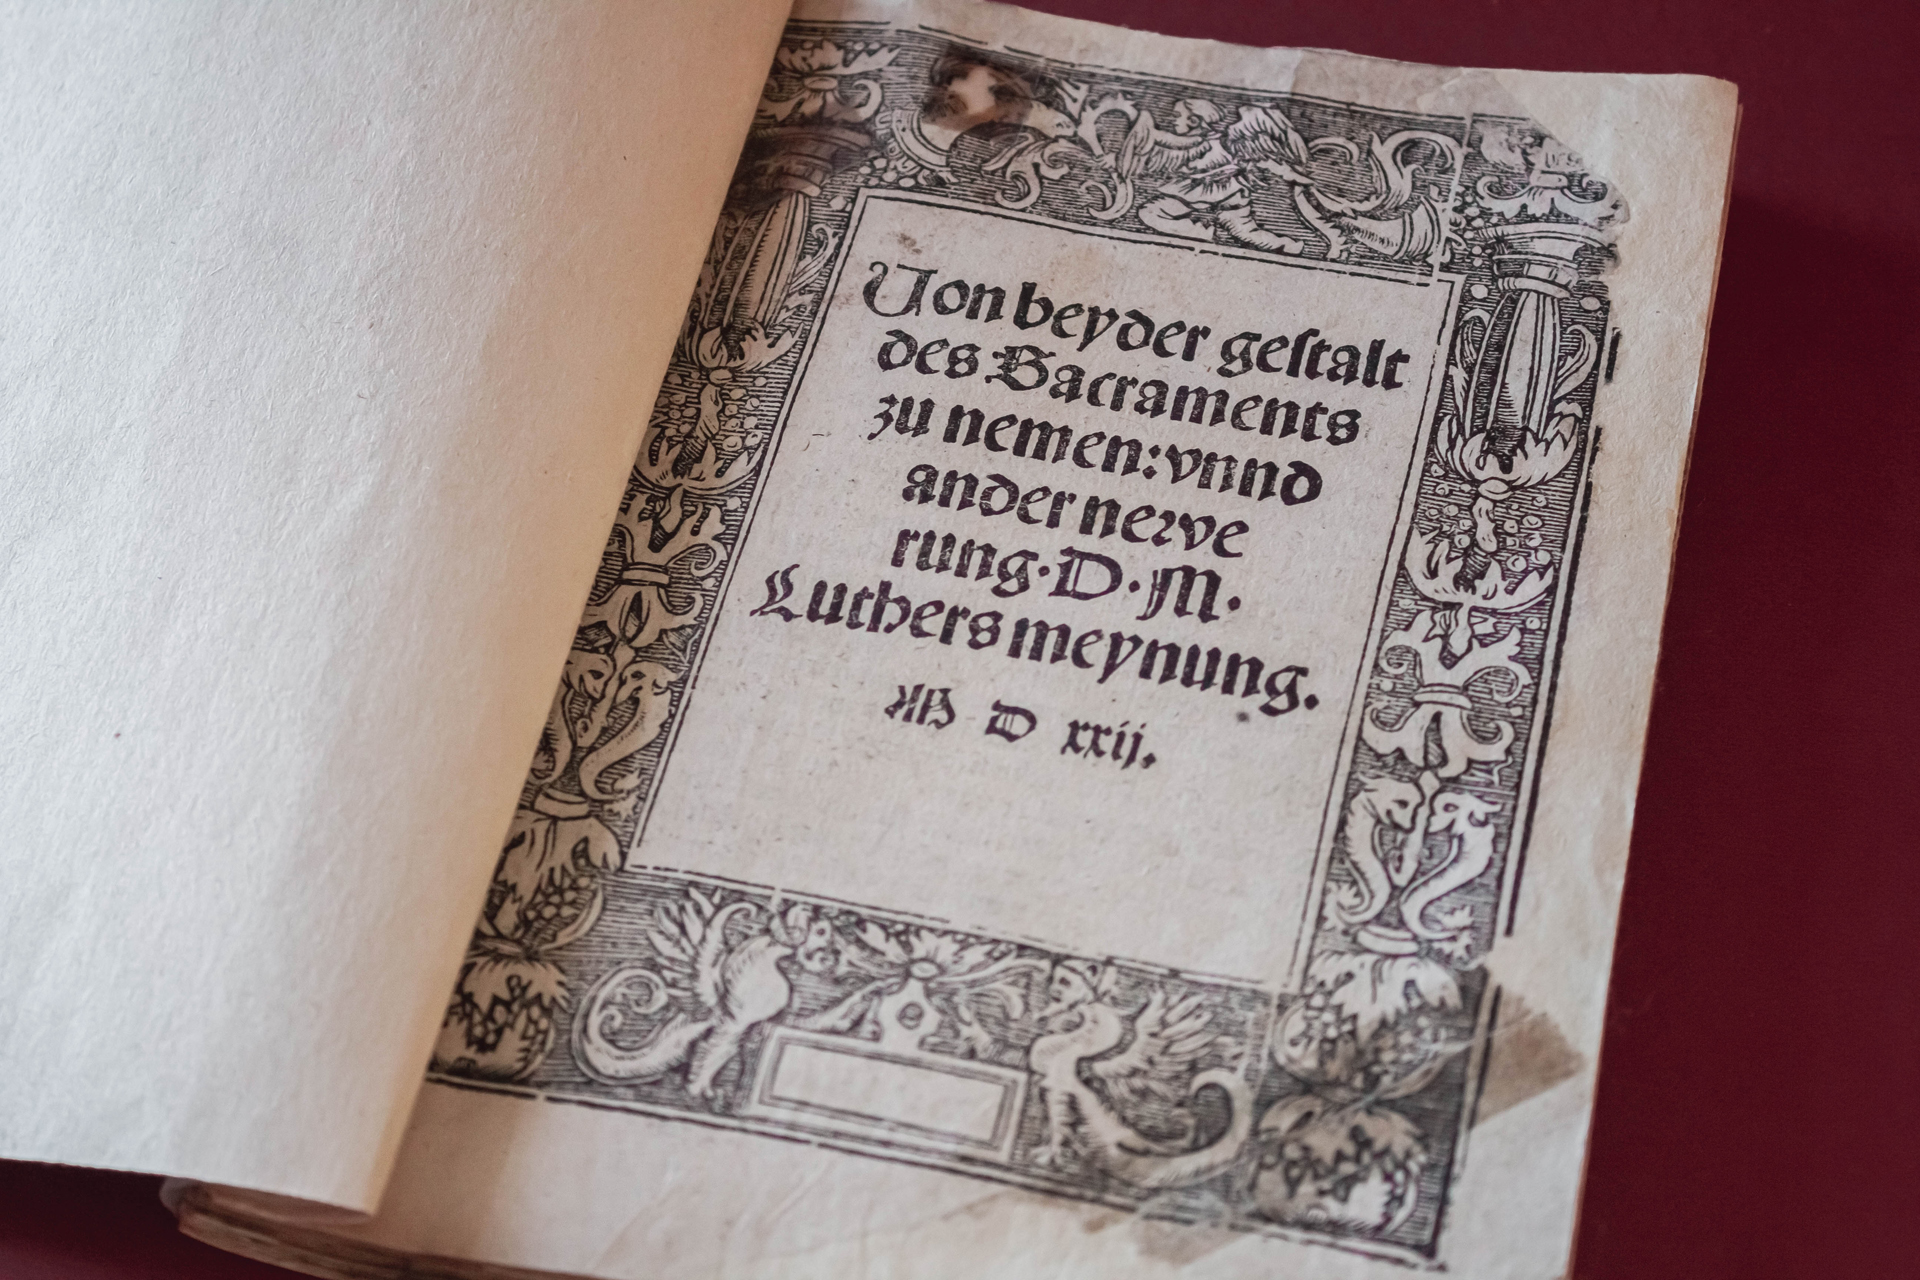 Von beyder gestalt
des Sacraments
zu nemen: vnnd
ander nerve
rung. D. M.
Luthers meynung.
M D xxij.